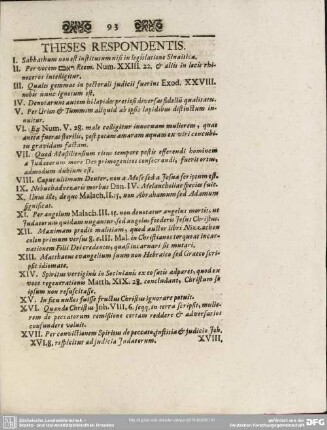 93
THESES RESPONDENTIS.
I. Sabbathum non est institutum nisi in legislatione Sinaitica.
II. Per vocem Reem. Num. XXIII. 22. & aliis in locis rhi-
noceros intelligitur.
III. Quales gemmæ in pectorali judicii fuerint Exod. XXVIII.
nobis nunc ignotum est.
IV. Denotarunt autem hi lapides pretiosi diversas fidelium qualitates.
V. Per Urim & Tummim aliquid ab ipsis lapidibus distinctum in-
nuitur.
VI. Ex Num. V. 28. male colligitur innocuam mulierem, quæ
antea fuerat sterilis, post potum amaram aquam ex viri concubi-
tu gravidam factam.
VII. Quod Massiliensium ritus tempore pestis offerendi hominem
a Judæorum more Deo primogenitos consecrandi, fuerit ortus,
admodum dubium est.
VIII. Caput ultimum Deuter. non a Mose sed a Josua scriptum est.
IX. Nebuchadnezaris morbus Dan. IV. Melancholiæ species fuit.
X. Unus ille, de quo Malach. II. 15. non Abrahamum sed Adamum
significat.
XI. Per angelum Malach. III. 1. non denotatur angelus mortis, ut
Judæorum quidam negantur, sed angelus foederis Jesus Christus.
XII. Maximam prodit malitiam, quod auctor libri Nizzachon
colon primum versus 8. c. III. Mal. in Christianos torqueat incar-
nationem Filii Dei credentes, quasi incarnati Dei hostes.
XIII. Matthæus evangelium suum non Hebraico sed Græco scri-
psit idiomate.
XIV. Spiritus vertiginis in Socinianis ex eo satis adparet, quod ex
voce regenerationis Matth. XIX. 28. concludant, Christum se
ipsum non resuscitasse.
XV. In ficu nullos fuisse fructus Christus ignorare potuit.
XVI. Quando Christus Joh. VIII, 6. seqq. in terra scripsit, mulie-
rem de peccatorum remissione certam reddere & adversarios
confundere voluit.
XVII. Per convictionem Spiritus de peccato, justitia & judicio Joh.
XVI, 8, respicitur ad judicia Judæorum.
XVIII,